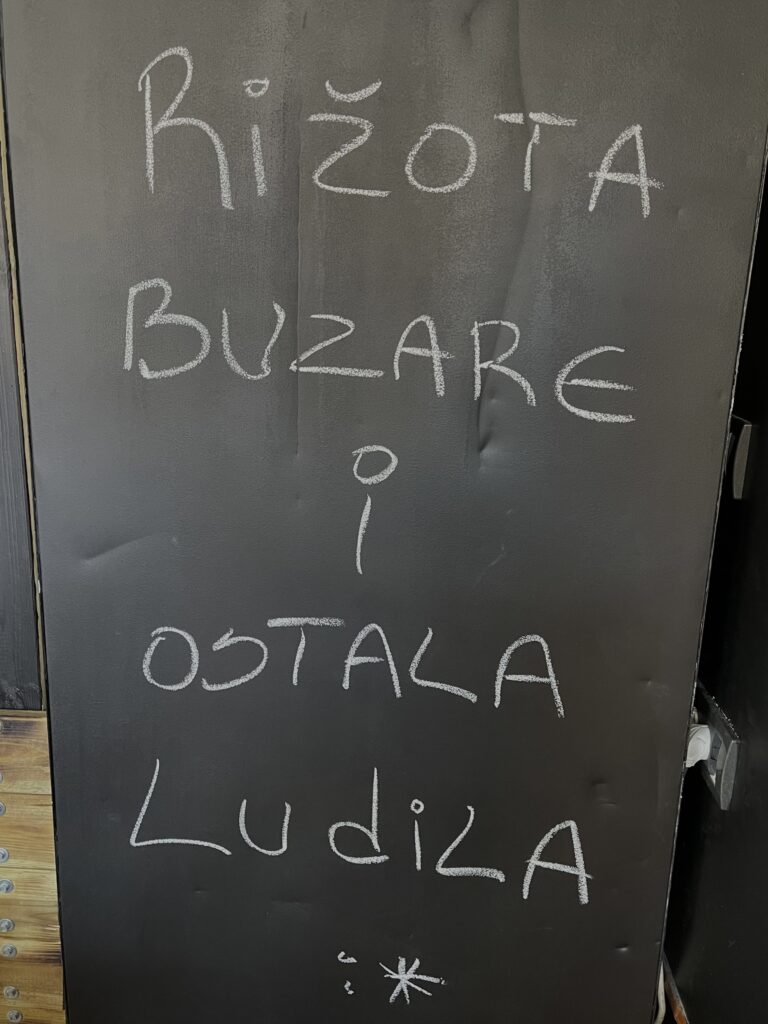 RiŽOTA
BUZARE
i
OSTALA
LUdiLA
:*